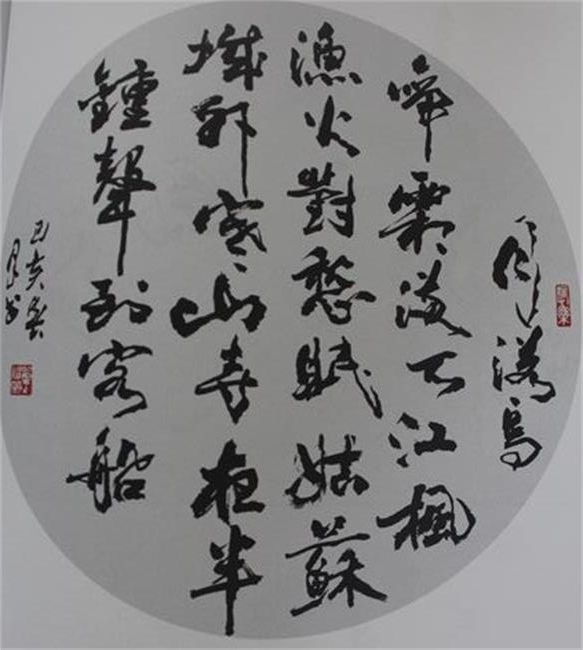 月落烏
啼霜滿天江楓
漁火對愁眠姑蘇
城外寒山寺夜半
鐘聲到客船
己亥